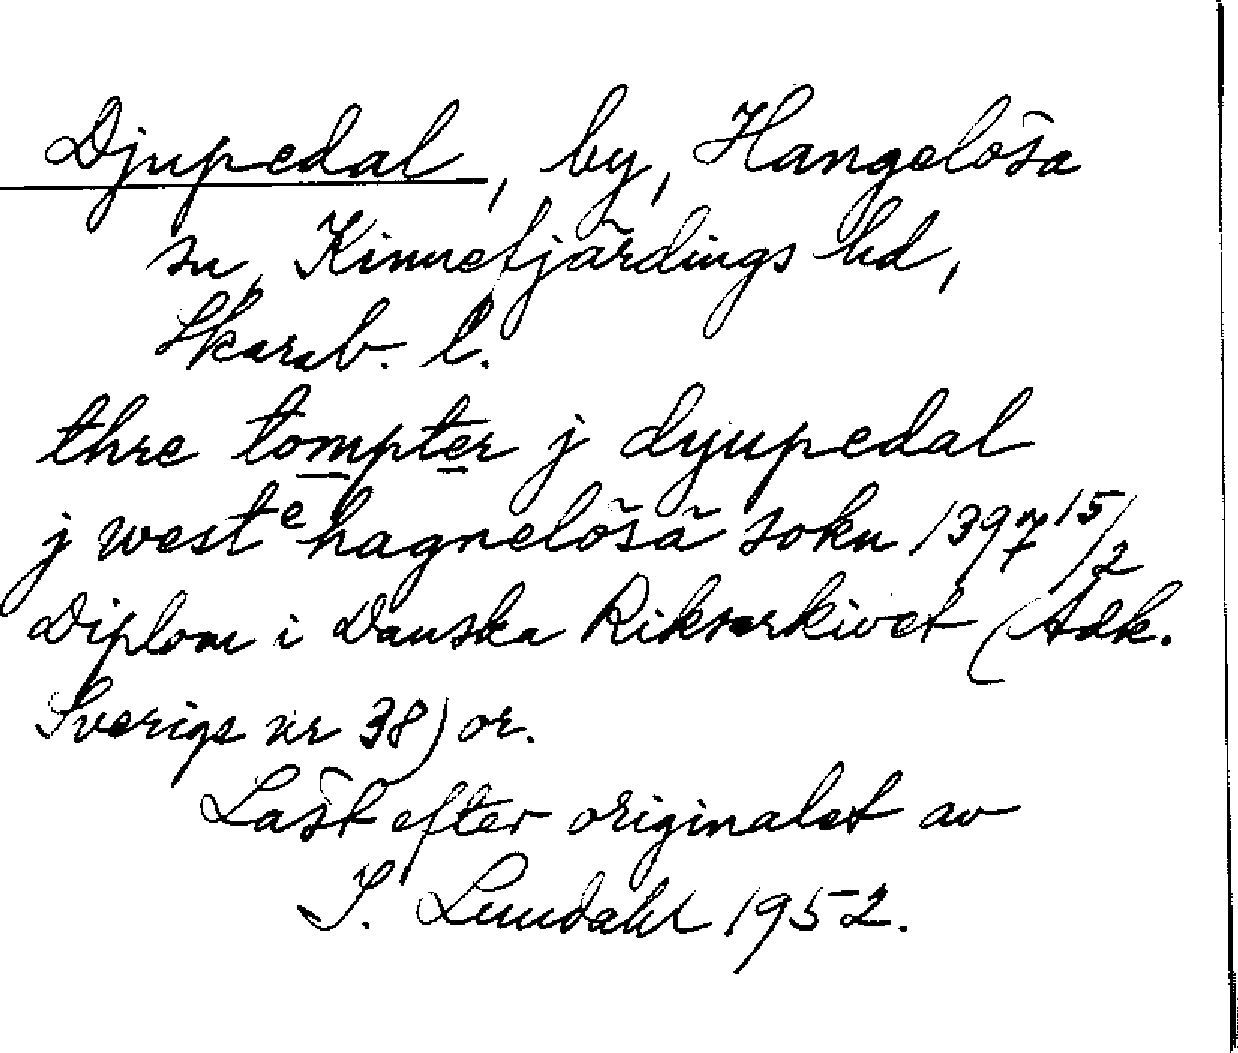 Djupedal, by, Hangelösa
sn, Kinnefjärdings hd,
Skarab. l.
thre tompter j dyupedal
j west e hagnelösä sokn 1397 15/2
Diplom i Danska Riksarkivet (Adk.
Sverige nr 38) or.
Läst efter originalet av
I. Lundahl 1952.